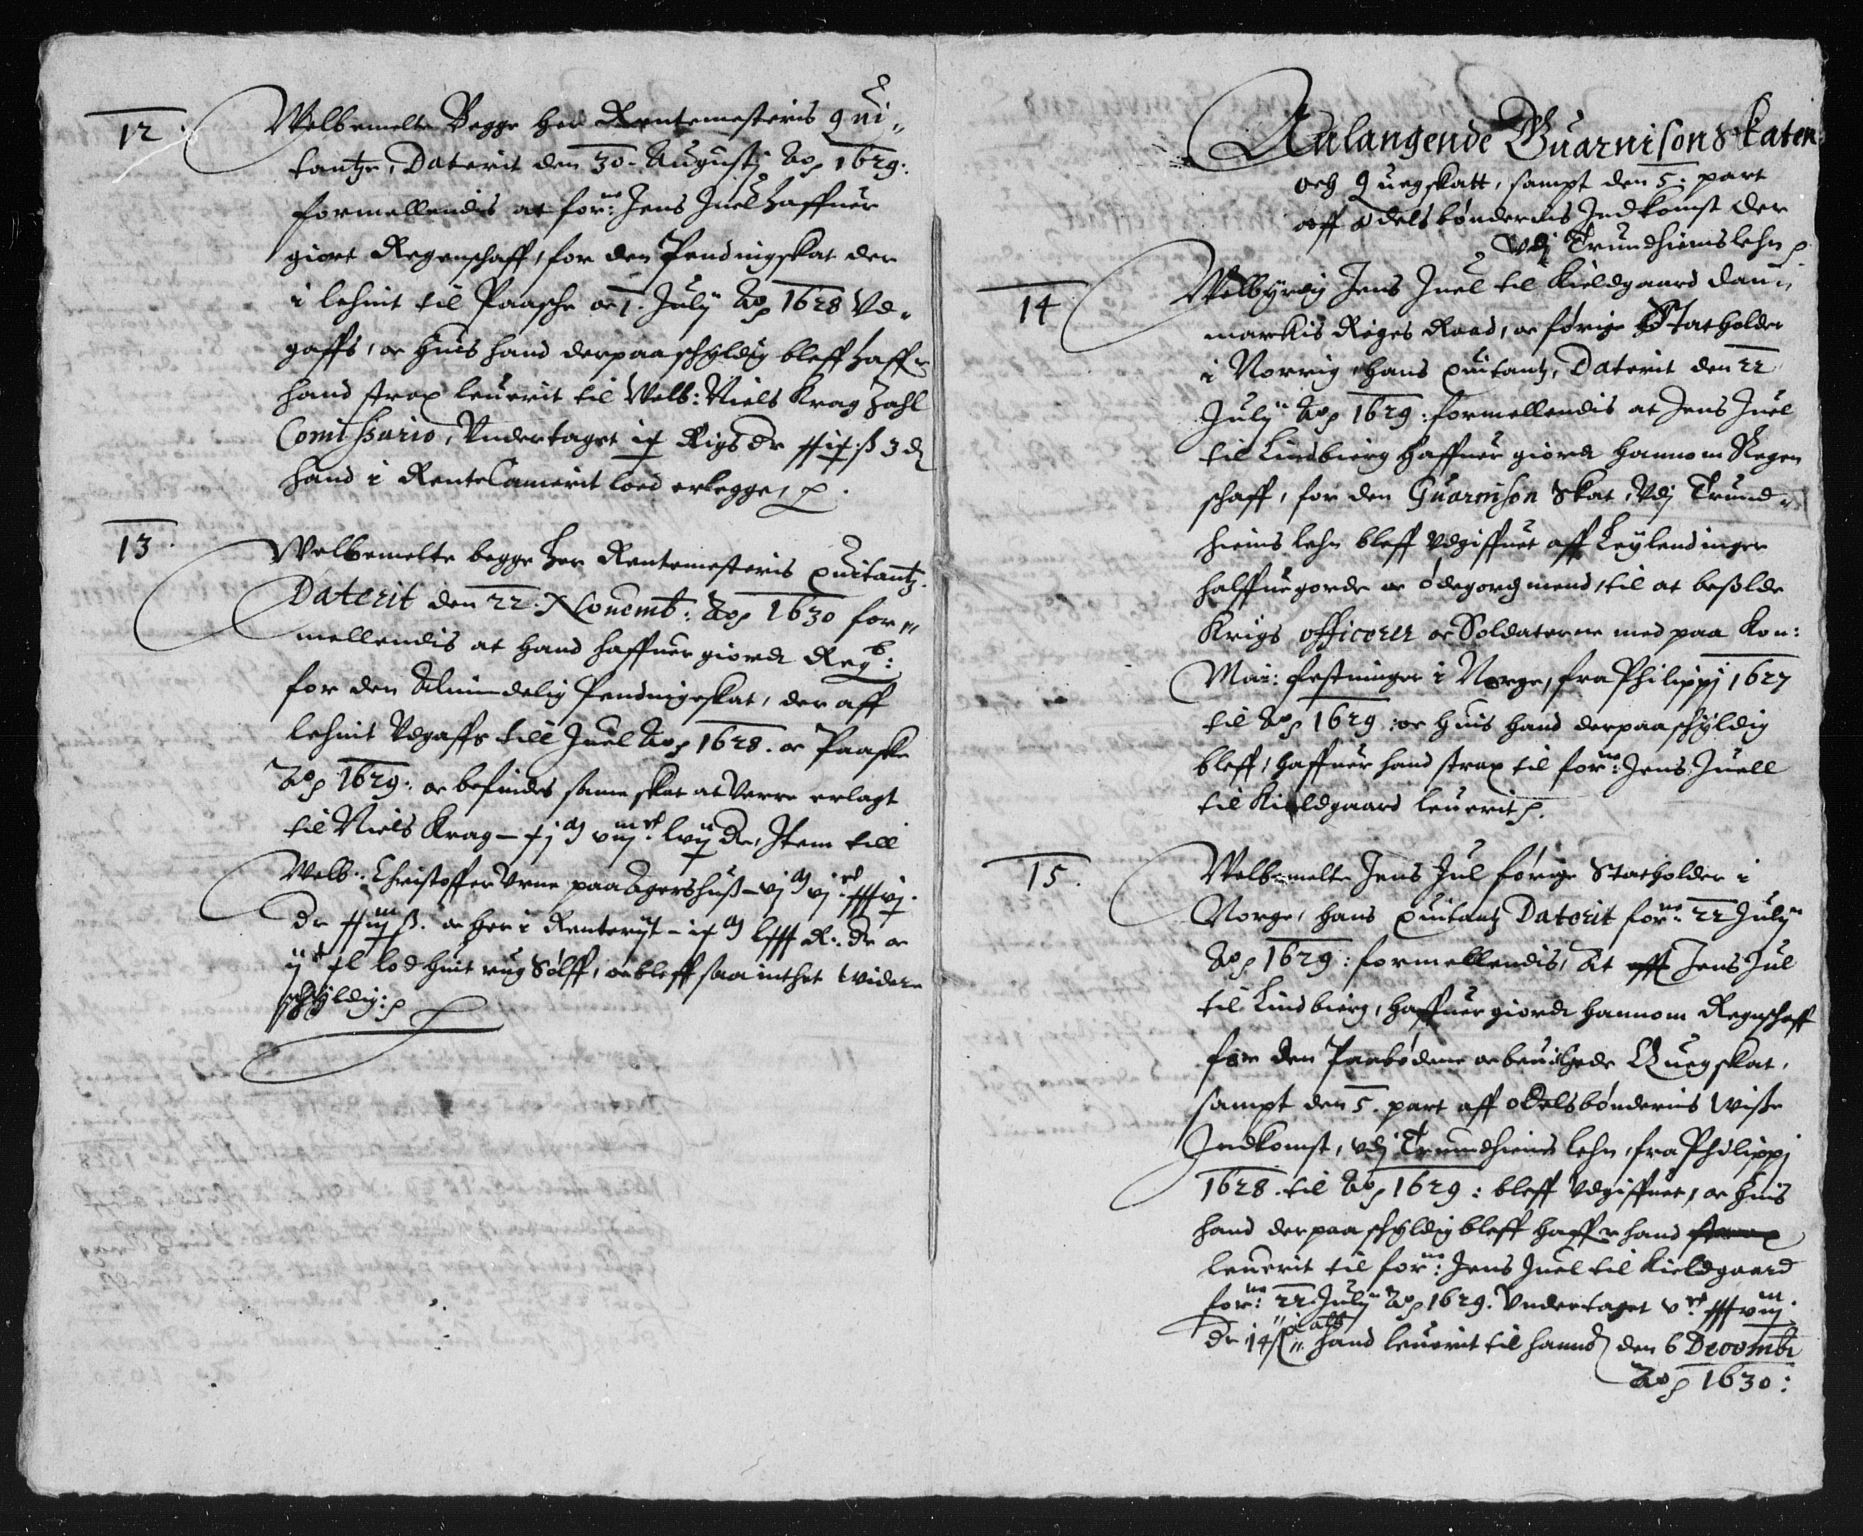 12.
Welbemelte Begge her Rentemesteris Qui„
tantze, Daterit den 30. Augustj Ao 1629:
formellendis at forne: Jens Juel haffuer
giort Regenschaff, for den Pendingskat der
i lehnit til Paasche oc 1. July Ao 1628 Vd„
gaffs, oc huis hand derpaa schyldig bleff haffr
hand strax leuerit til Welb: Niels Krag Zahl
Comissario, Vndertaget ij Rigs dr xxij ß 3 d
hand i RenteCamerit loed erlegge, p.
13.
Welbemelte begge her Rentemesteris Quitantz.
Daterit den 22. Nouemb: Ao 1630 for„
mellendis at hand haffuer giordt Regb:
for den Almindelig Pendingeskat, der aff
lehnit Vdgaffs till Juel Ao 1628. oc Paaske
Ao 1629. oc befindes same skat at Verre erlagt
til Niels Krag – xj m viij c lvij Dr, Item till
Welb: Christoffer Vrne paa Agershuß – vj m vj c xxxvj.
Dr xxiij ß. oc her i Renteriit – ij m lxxx R. Dr oc
ij c xl lod huit rug Sølff, oc bleff saa inthet widere
schyldig: p
Anlangende Guarnisons skaten
och Quegskatt, sampt den 5. part
aff odelsbøndernis Indkomst der
vdj Trundhiemslehn p.
14
Welbyrdig Jens Juel til Kieldgaard Dan„
markis Riges Raad, oc førige Statholder
i Norrig, hans Quitantz, Daterit den 22
July Ao 1629: formellendis at Jens Juel
til Lindbierg haffuer giordt hannom Regen
schaff, for den Guarnison Skat, Vdj Trund„
hiems lehn bleff vdgiffuet aff Leylendinger
halffuegorde oc ødegordsmend, til at besolde
Krigs officerer oc Soldaterne med paa Kon:
Mai: festninger i Norge, fra Philippj 1627
til Ao 1629: oc huis hand derpaa schyldig
bleff, haffuer hand strax til forne: Jens Juell
til Kieldgaard leuerit p.
15.
Welbemelte Jens Jul førige Statholder i
Norge, hans Quitantz Daterit forne: 22 July
Ao 1629: formellendis, At aff Jens Jul
til Lindbierg, haffuer giordt hannom Regnschaff
for den Paabødene oc beuilgede Quegskat,
sampt den 5. part aff odelsbøndernis wiße
Indkomst, vdj Trundhiems lehn, fra Philippj
1628. til Ao 1629: bleff vdgiffuet, oc huis
hand derpaa schyldig bleff haffr hand strax
leuerit til forne: Jens Juel til Kieldgaard
forne: 22. July Ao 1629. Vndertaget v c xxxviij.
Dr 14 ß„ hand leuerit til hannd den 6 Decembr
Ao 1630: